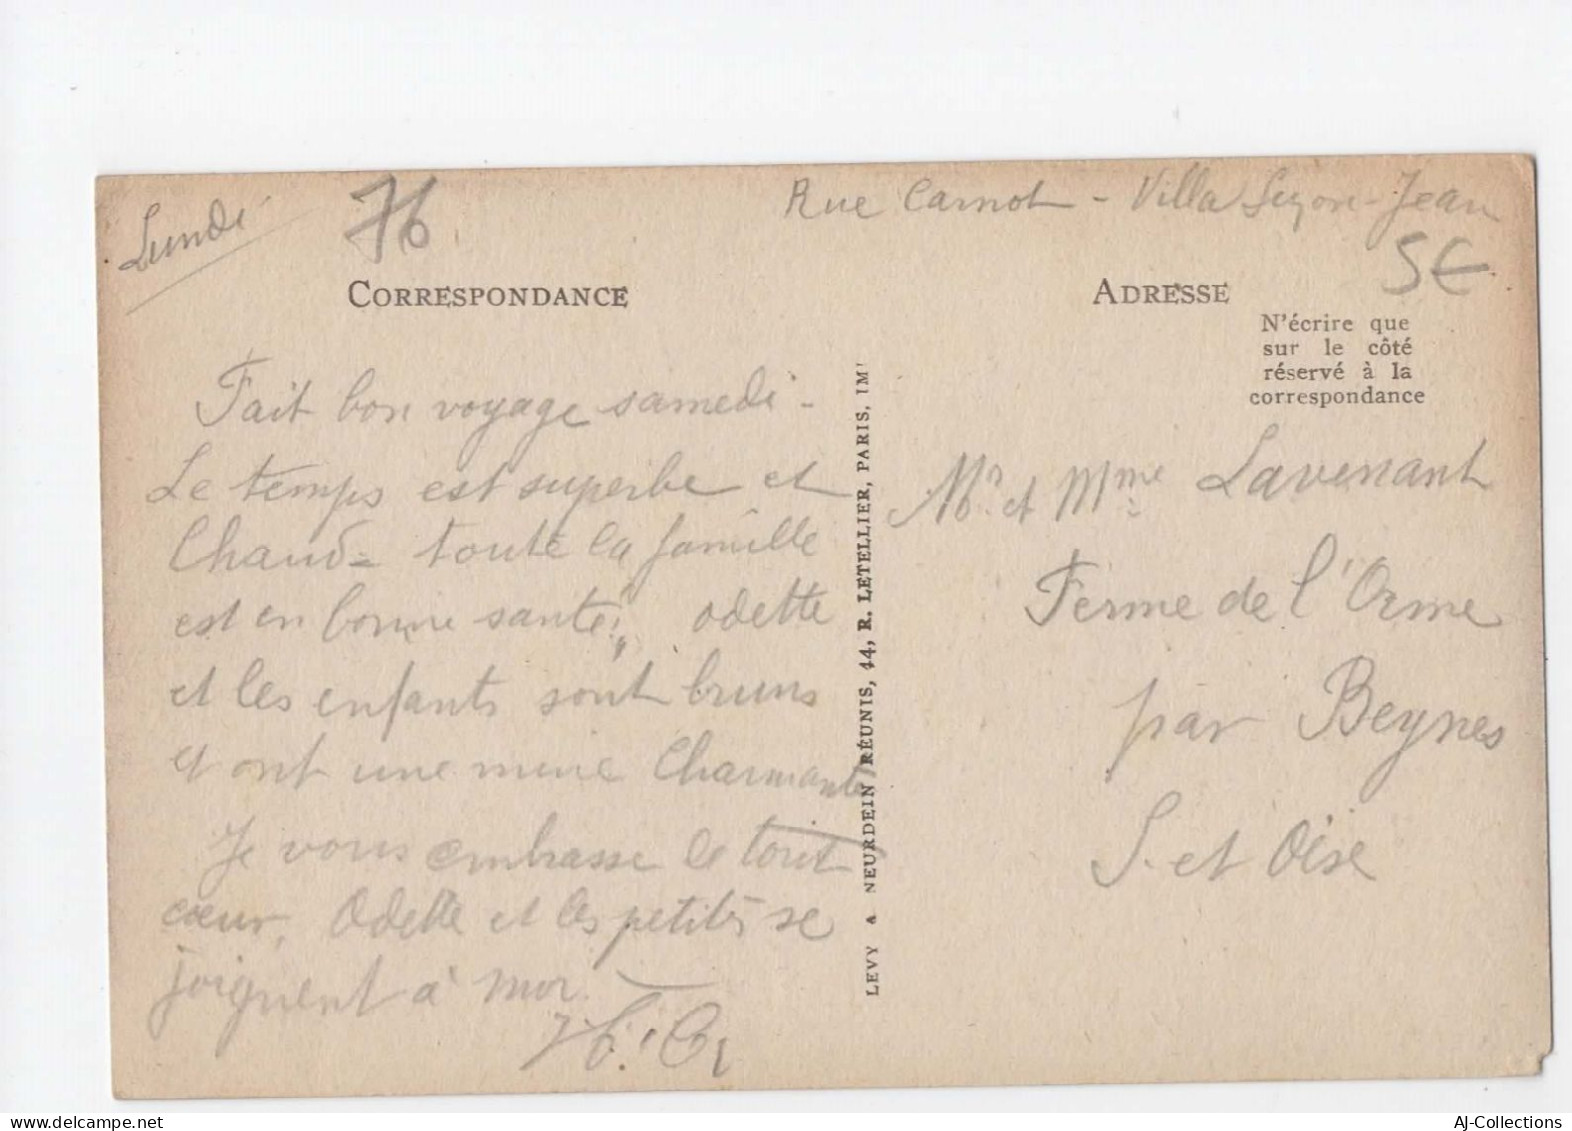 Lundi
76
Rue Carnot - Villa Suzon-Jean
5€
CORRESPONDANCE
Fait bon voyage samedi -
Le temps est superbe et
Chaud - toute la famille
est en bonne santé, Odette
et les enfants sont bruns
et ont une mine Charmante
Je vous embrasse de tout
cœur, Odette et les petites se
joignent à moi.
LEVY & NEURDEIN RÉUNIS, 44, R. LETELLIER, PARIS, IMP
ADRESSE
N'écrire que
sur le côté
réservé à la
correspondance
Mr et Mme Lavenant
Ferme de l'Orme
par Beynes
S. et Oise
delcampe.net
AJ-Collections